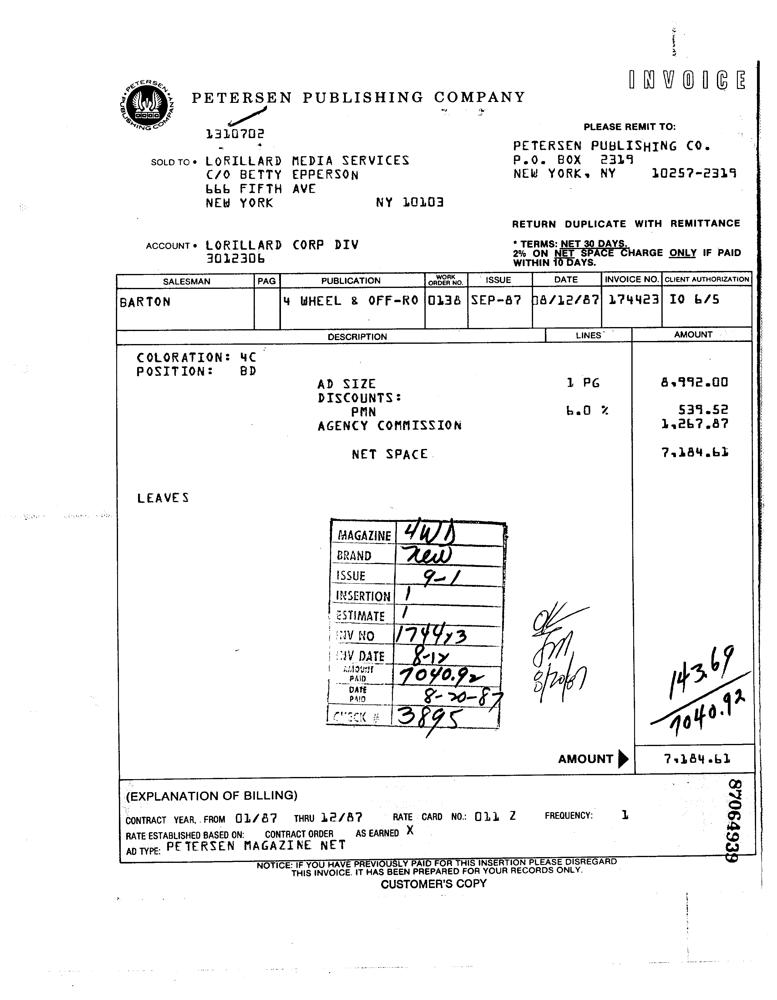 INVOICE
PETERSEN PUBLISHING COMPANY
PETERSEN PUBLISHING COMPANY
1310702
PLEASE REMIT TO:
PETERSEN PUBLISHING CO.
P.O. BOX 2319
NEW YORK, NY 10257-2319
SOLD TO • LORILLARD MEDIA SERVICES
C/O BETTY EPPERSON
666 FIFTH AVE
NEW YORK NY 10103
RETURN DUPLICATE WITH REMITTANCE
ACCOUNT • LORILLARD CORP DIV
3012306
* TERMS: NET 30 DAYS.
2% ON NET SPACE CHARGE ONLY IF PAID
WITHIN 10 DAYS.
SALESMAN PAG PUBLICATION WORK ORDER NO. ISSUE DATE INVOICE NO. CLIENT AUTHORIZATION
BARTON 4 WHEEL & OFF-RO 0138 SEP-87 08/12/87 174423 IO 6/5
DESCRIPTION LINES AMOUNT
COLORATION: 4C
POSITION: BD
AD SIZE 1 PG 8,992.00
DISCOUNTS:
PMN 6.0 % 539.52
AGENCY COMMISSION 1,267.87
NET SPACE 7,184.61
LEAVES
MAGAZINE 4WD
BRAND new
ISSUE 9-1
INSERTION 1
ESTIMATE 1
INV NO 174423
INV DATE 8-12
AMOUNT PAID 7040.92
DATE PAID 8-20-87
CHECK # 3895
OK
8/20/87
143.69
7040.92
AMOUNT 7,184.61
(EXPLANATION OF BILLING)
CONTRACT YEAR, FROM 01/87 THRU 12/87 RATE CARD NO.: 011 Z FREQUENCY: 1
RATE ESTABLISHED BASED ON: CONTRACT ORDER AS EARNED X
AD TYPE: PETERSEN MAGAZINE NET
87064939
NOTICE: IF YOU HAVE PREVIOUSLY PAID FOR THIS INSERTION PLEASE DISREGARD
THIS INVOICE. IT HAS BEEN PREPARED FOR YOUR RECORDS ONLY.
CUSTOMER'S COPY